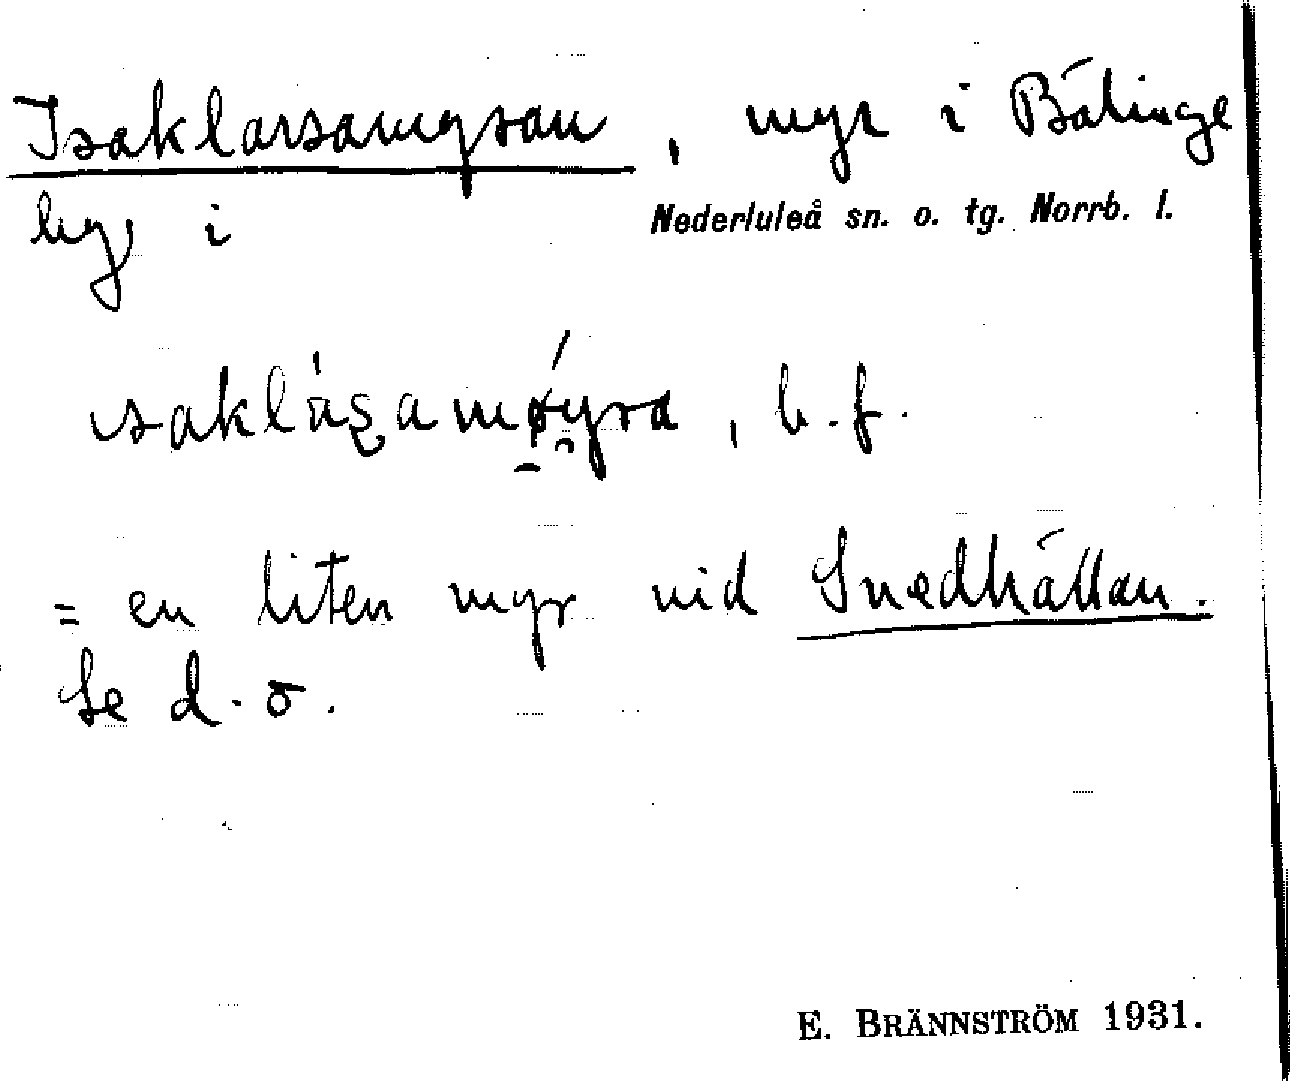 Isaklarsamyran, myr i Bälinge
by i
Nederluleå sn. o. tg. Norrb. l.
b.f.
= en liten myr vid Snedhällan.
Se d.o.
E. BRÄNNSTRÖM 1931.